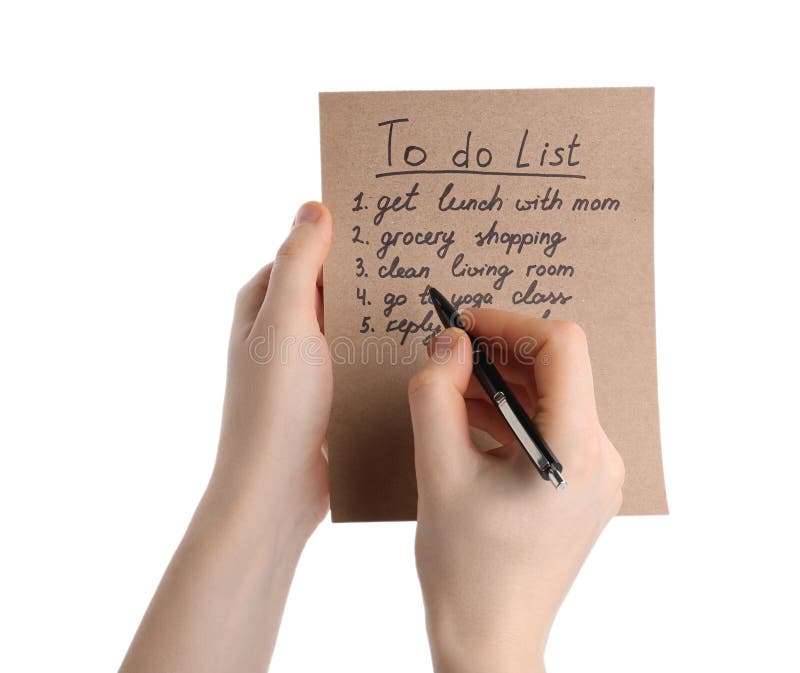 To do List
1. get lunch with mom
2. grocery shopping
3. clean living room
4. go to yoga class
5. reply
dreamstime